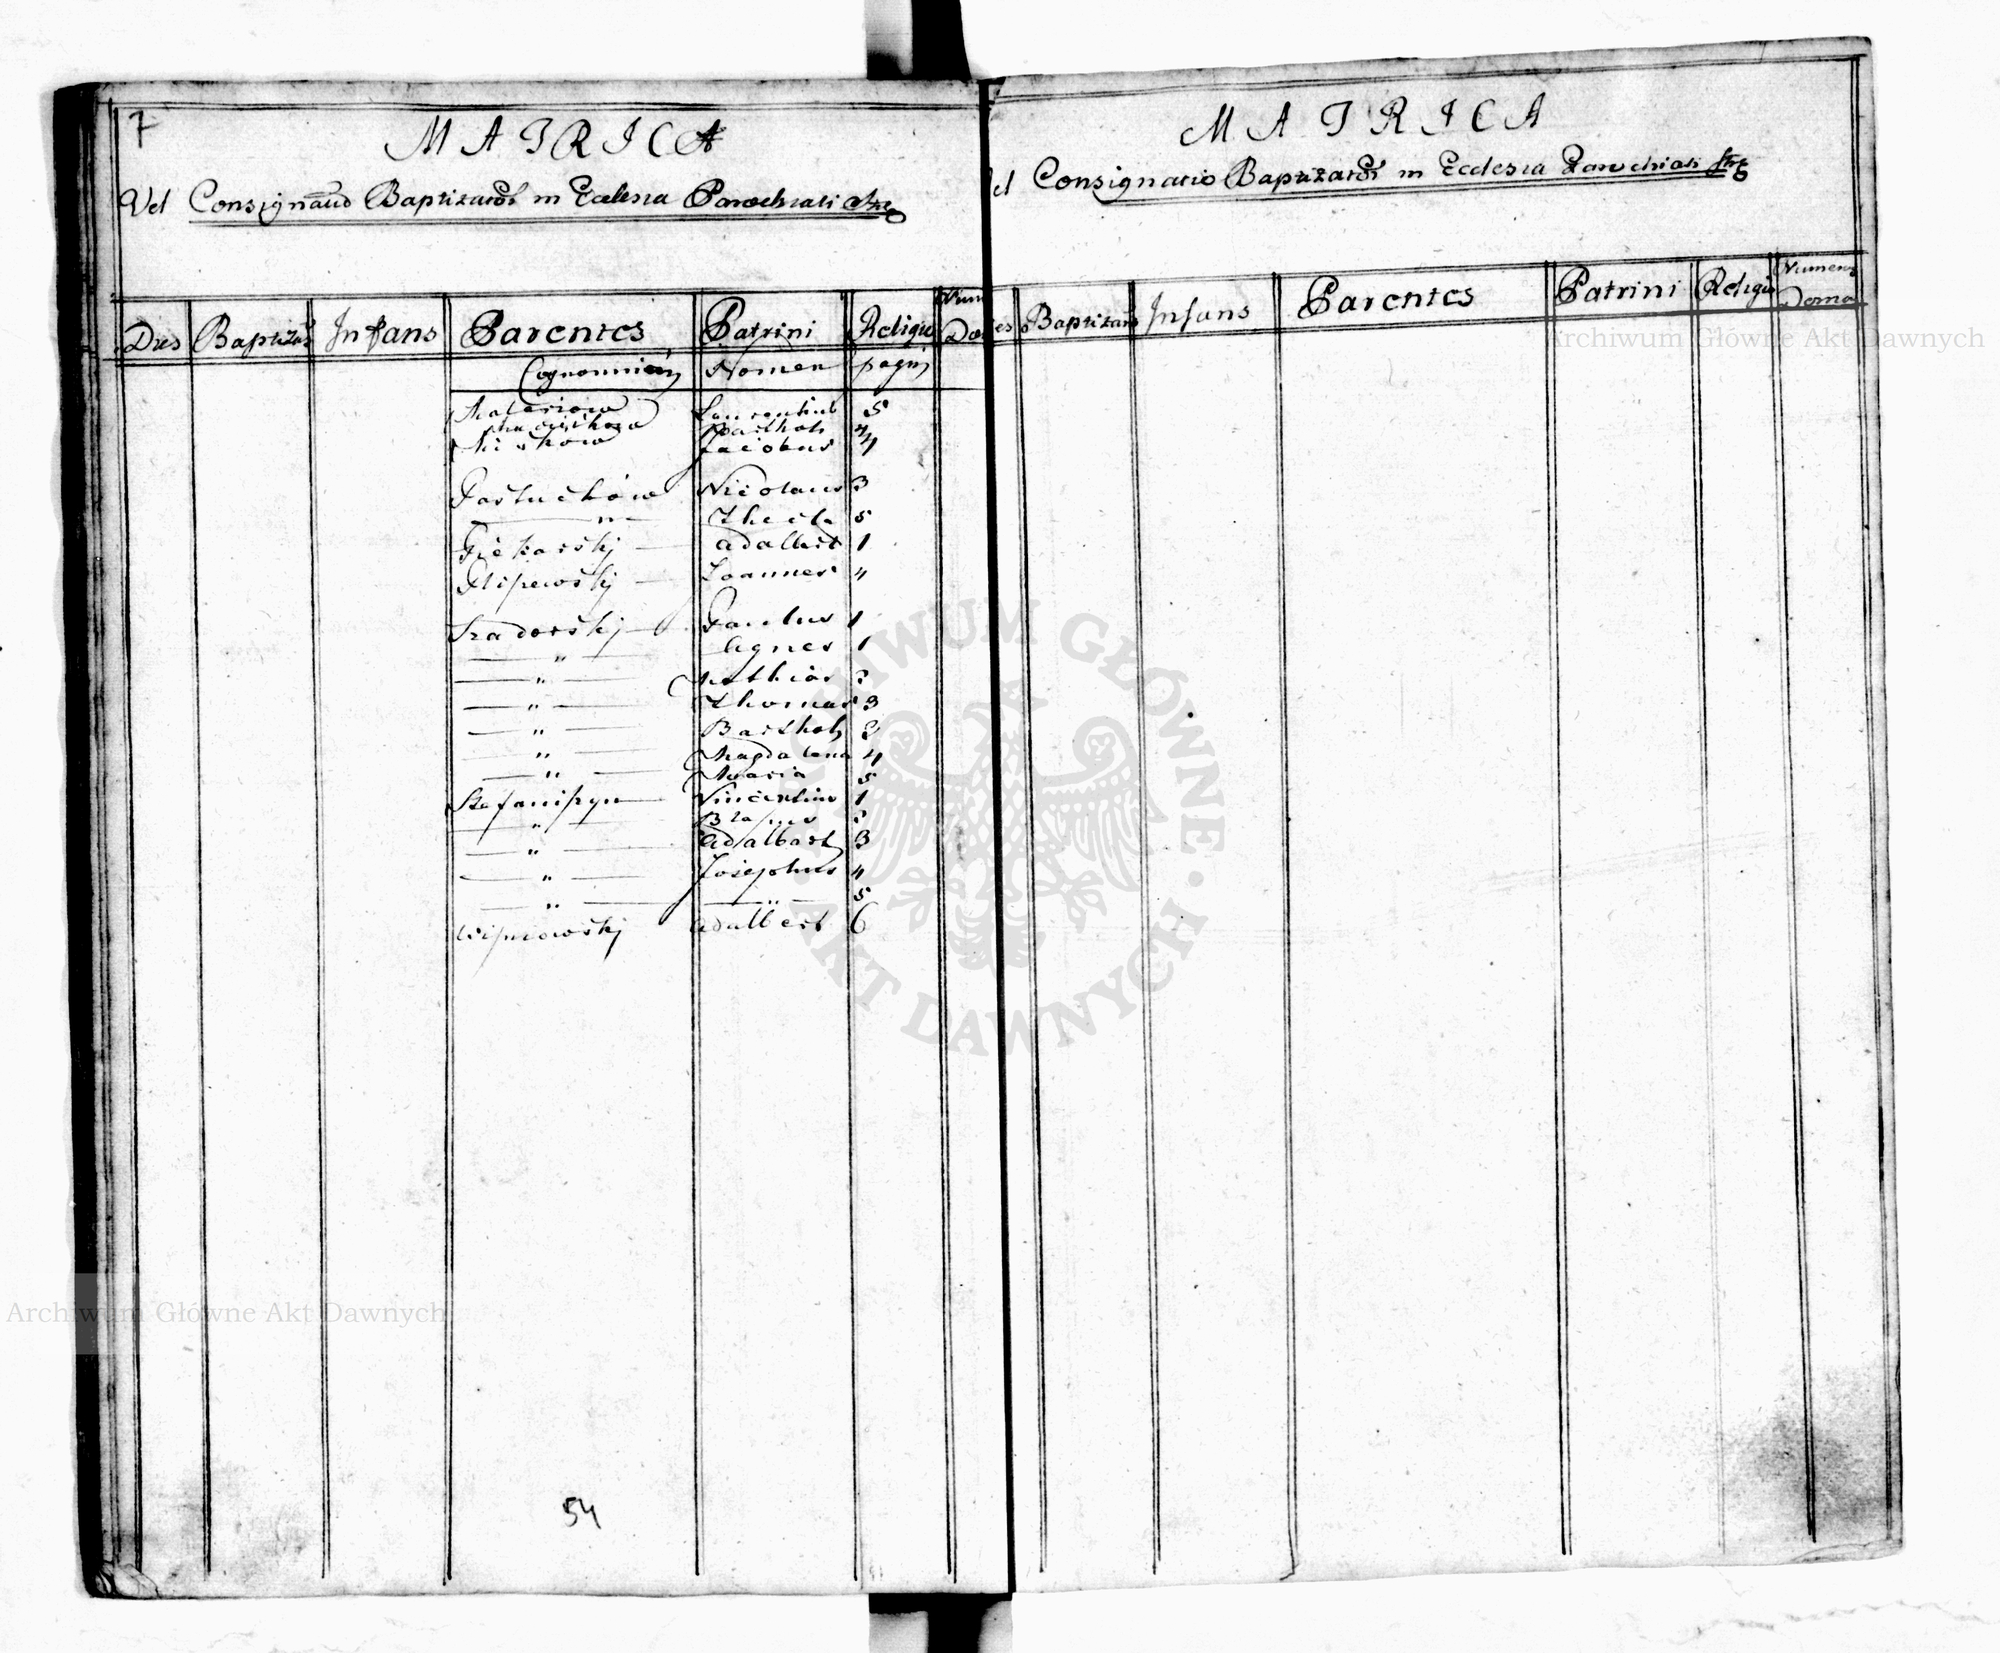 7
MATRICA
Vel Consignatio Baptizator in Ecclesia Parochiali
Dies Baptizans Infans Parentes Patrini Religio
Cognomina Nomen pagin
Laurentius 5
Barthol 4
Jacobus 4
Pastuchów Nicolaus 3
— " — Thecla 5
Piekarski — Adalbert 1
Joannes 4
Szadorski — Paulus 1
— " — Agnes 1
— " — Mathias 2
— " — Thomas 3
— " — Barthol 2
— " — Magdalena 4
— " — Maria 5
Stefaniszyn — Vincentius 1
— " — Blasius 2
— " — Adalbert 3
— " — Josephus 4
— " — — " — 5
Wiszniowski Adalbert 6
54
MATRICA
el Consignatio Baptizator in Ecclesia Parochiali
es Baptizans Infans Parentes Patrini Religio Numerus Domo
Archiwum Główne Akt Dawnych
ARCHIWUM GŁÓWNE AKT DAWNYCH
Archiwum Główne Akt Dawnych